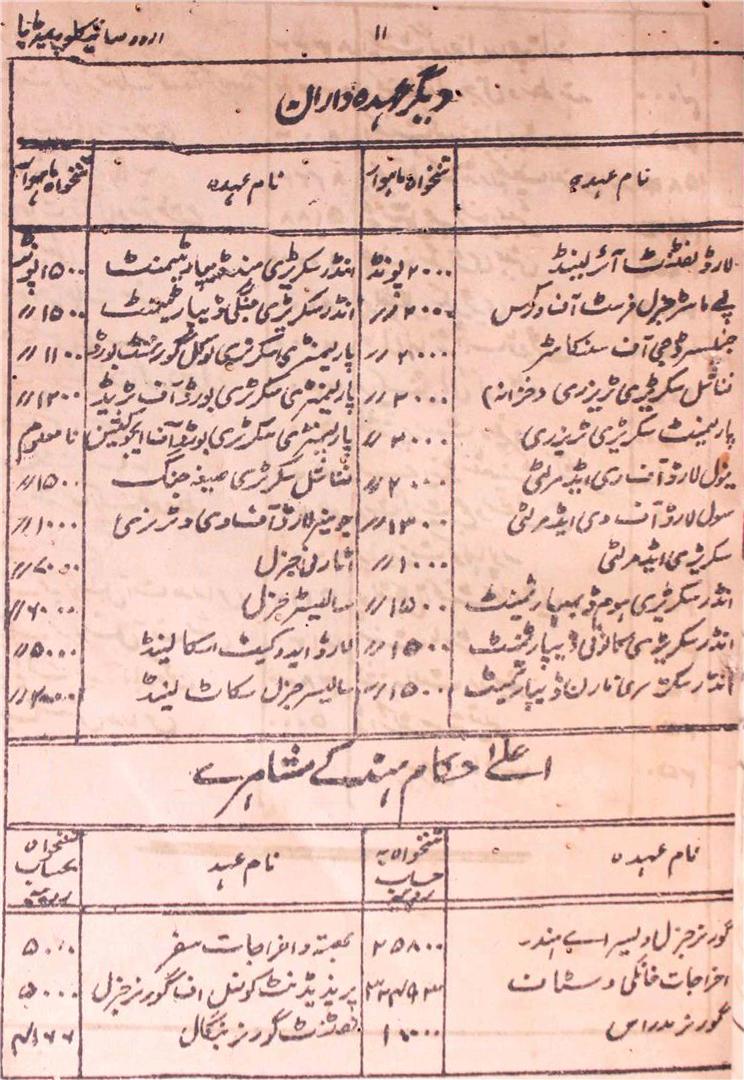 اردو سائیکلوپیڈیا
۱۱
دیگر عہدہ داران
نام عہدہ | تنخواہ ماہوار | نام عہدہ | تنخواہ ماہوار
لارڈ لفٹنٹ آئرلینڈ | ۲۰۰۰ پونڈ | انڈر سکرٹری ہند ڈیپارٹمنٹ | ۱۵۰۰ پونڈ
پے ماسٹر جنرل فرسٹ آف ورکس | ۲۰۰۰ // | انڈر سکرٹری جنگی ڈیپارٹمنٹ | ۱۵۰۰ //
چنسلر ڈچی آف لنکاسٹر | ۲۰۰۰ // | پارلیمنٹری سکرٹری لوکل گورنمنٹ بورڈ | ۱۱۰۰ //
فنانشل سکرٹری ٹریزری وخزانہ | ۲۰۰۰ // | پارلیمنٹری سکرٹری بورڈ آف ٹریڈ | ۱۲۰۰ //
پارلیمنٹ سکریٹری ٹریزری | ۲۰۰۰ // | پارلیمنٹری سکرٹری بورڈ آف ایجوکیشن | نامعلوم
نیول لارڈ آف دی ایڈمرلٹی | ۲۰۰۰ // | فنانشل سکرٹری صیغہ جنگ | ۱۵۰۰ //
سول لارڈ آف دی ایڈمرلٹی | ۱۳۰۰ // | جونیر لارڈ آف دی ٹریزری | ۱۰۰۰ //
سکریٹری ایڈمرلٹی | ۱۰۰۰ // | اٹارنی جنرل | ۷۰۰۰ //
انڈر سکریٹری ہوم ڈیپارٹمنٹ | ۱۵۰۰ // | سالیسٹر جنرل | ۶۰۰۰ //
انڈر سکریٹری کالونی ڈیپارٹمنٹ | ۱۵۰۰ // | لارڈ ایڈوکیٹ اسکاٹ لینڈ | ۵۰۰۰ //
انڈر سکرٹری فارن ڈیپارٹمنٹ | ۱۵۰۰ // | سالیسر جنرل سکاٹ لینڈ | ۲۰۰۰ //
اعلےٰ حکام ہند کے مشاہرے
نام عہدہ | تنخواہ بہ حساب روپیہ | نام عہد | تنخواہ بحساب روپیہ
گورنر جنرل ویسراے ہند | ۲۵۸۰۰ | بھتہ و اخراجات سفر | ۵۰۰۰
اخراجات خانگی و سٹاف | پریذیڈنٹ کونسل اف گورنر جنرل | ۵۰۰۰
گورنر مدراس | ۱۰۰۰۰ | لفٹنٹ گورنر بنگال